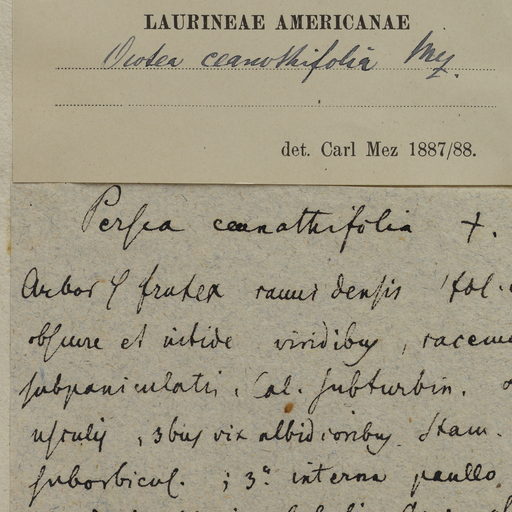 LAURINEAE AMERICANAE
Ocotea ceanothifolia Mez.
det. Carl Mez 1887/88.
Persea ceanothifolia †.
Arbor frutex ramis densis fol.
obscure et nitide viridibus, racem
subpaniculatis. Cal. subturbin.
3bus vix albidioribus. Stam.
suborbicul. ; 3.a interna paullo